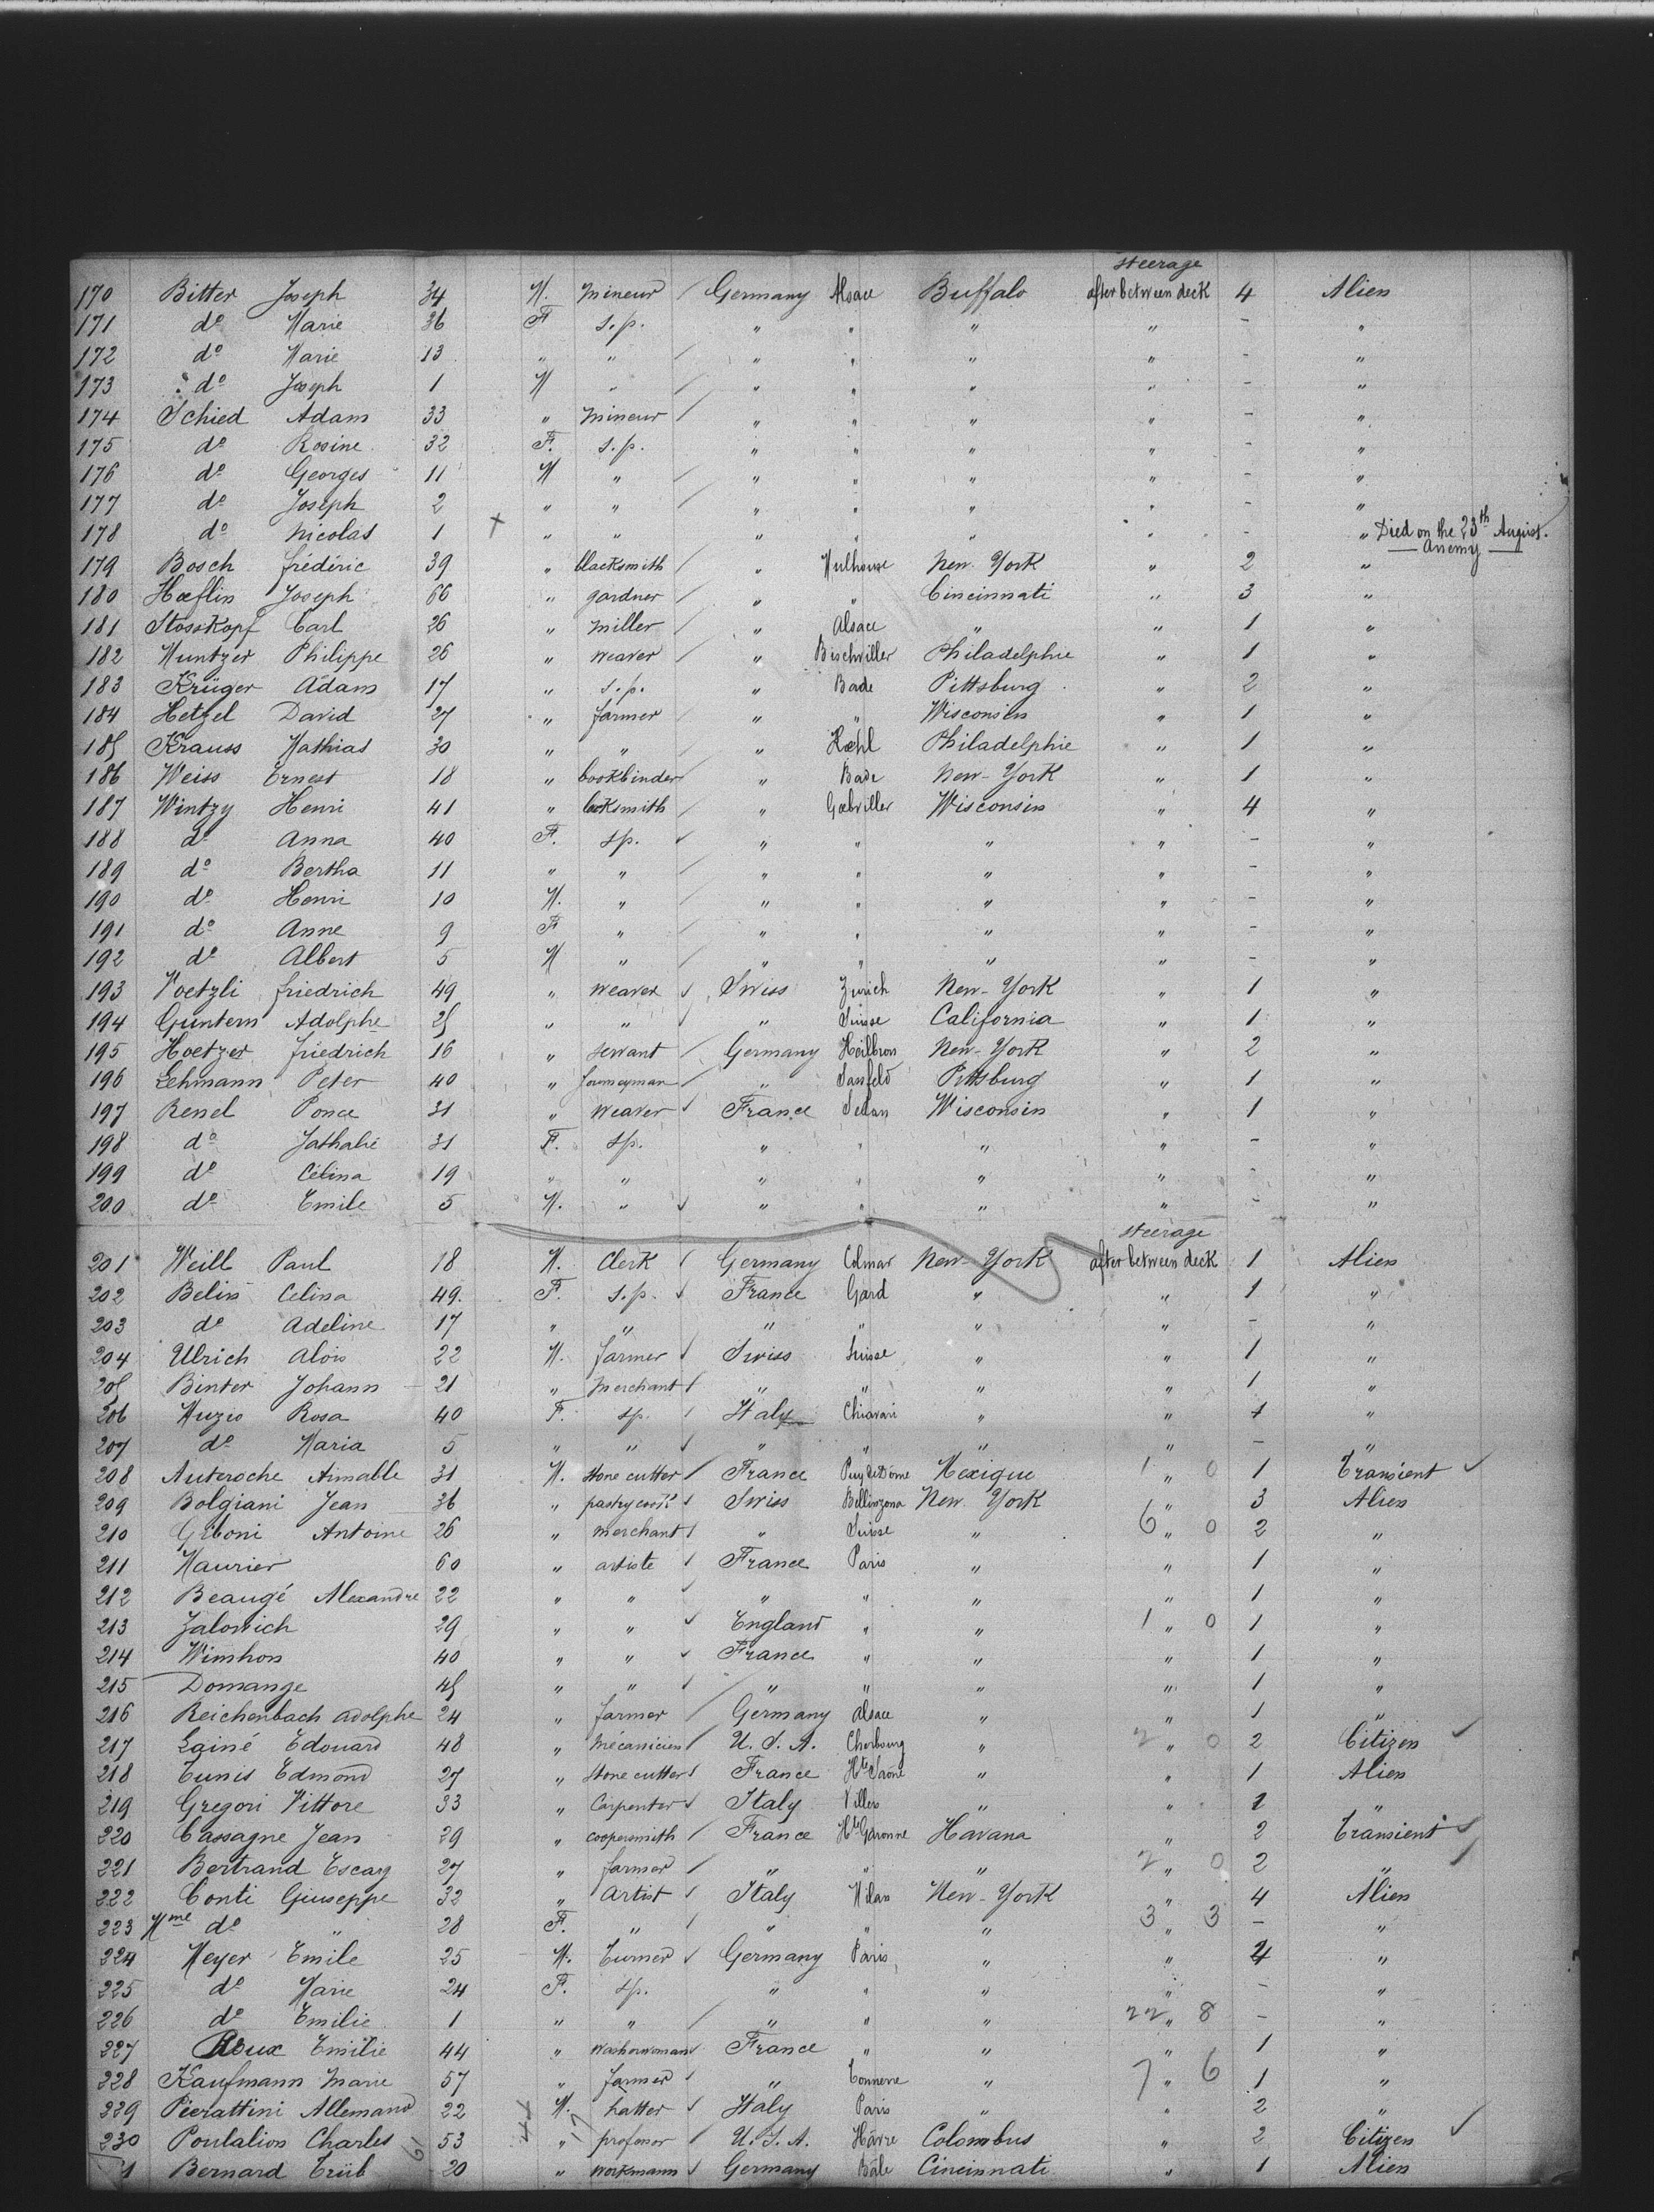 steerage
170 Bitter Joseph 34 M. Mineur Germany Alsace Buffalo after between deck 4 Alien
171 do Marie 36 F s.p. " " " " - "
172 do Marie 13 " " " " " " - "
173 do Joseph 1 M " " " " " - "
174 Schied Adam 33 " Mineur " " " " - "
175 do Rosine 32 F. s.p. " " " " - "
176 do Georges 11 M " " " " " - "
177 do Joseph 2 " " " " " " - "
178 do Nicolas 1 + " " " " " " - " Died on the 23th August.
Anemy
179 Bosch frédéric 39 " blacksmith " Mulhouse New-York " 2 "
180 Hœflin Joseph 66 " gardner " " Cincinnati " 3 "
181 Stosskopf Carl 26 " Miller " Alsace " " 1 "
182 Muntzer Philippe 26 " weaver " Bischviller Philadelphie " 1 "
183 Krüger Adam 17 " s.p. " Bade Pittsburg " 2 "
184 Hetzel David 27 " farmer " " Wisconsin " 1 "
185 Krauss Mathias 30 " " " Kœhl Philadelphie " 1 "
186 Weiss Ernest 18 " bookbinder " Bade New-York " 1 "
187 Wintzy Henri 41 " locksmith " Gœbviller Wisconsin " 4 "
188 do Anna 40 F. sp. " " " " - "
189 do Bertha 11 " " " " " " - "
190 do Henri 10 M. " " " " " - "
191 do Anne 9 F " " " " " - "
192 do Albert 5 M " " " " " - "
193 Voetzli friedrich 49 " weaver Swiss Zurich New-York " 1 "
194 Guntern Adolphe 25 " " " Suisse California " 1 "
195 Hoetzer friedrich 16 " servant Germany Heilbron New-York " 2 "
196 Lehmann Peter 40 " Journeyman " Sanfeld Pittsburg " 1 "
197 Renel Ponce 31 " weaver France Sedan Wisconsin " 1 "
198 do Jathalie 31 F. sp. " " " " - "
199 do Célina 19 " " " " " " - "
200 do Emile 5 M. " " " " " - "
steerage
201 Weill Paul 18 M. Clerk Germany Colmar New-York after between deck 1 Alien
202 Belin Celina 49. F. s.p. France Gard " " 1 "
203 do Adeline 17 " " " " " " - "
204 Ulrich Aloïs 22 M. farmer Swiss Suisse " " 1 "
205 Binter Johann 21 " Merchant " " " " 1 "
206 Muzio Rosa 40 F. sp. Italy Chiavari " " 1 "
207 do Maria 5 " " " " " " - "
208 Auteroche Aimable 31 M. stone cutter France Puy de Dôme Mexique 1 " 0 1 Transient
209 Bolgiani Jean 36 " pastry cook Swiss Bellinzona New-York " 3 Alien
210 Giboni Antoine 26 " merchant " Suisse " 6 " 0 2 "
211 Maurier 60 " artiste France Paris " " 1 "
212 Beaugé Alexandre 22 " " " " " " 1 "
213 Jalowich 29 " " England " " 1 " 0 1 "
214 Wimhon 40 " " France " " " 1 "
215 Domange 45 " " " " " " 1 "
216 Reichenbach Adolphe 24 " farmer Germany Alsace " " 1 "
217 Lainé Edouard 48 " Mécanicien U. S. A. Cherbourg " 2 " 0 2 Citizen
218 Tunis Edmond 27 " stone cutter France Hte Saône " " 1 Alien
219 Gregori Vittore 33 " Carpenter Italy Villers " " 1 "
220 Cassagne Jean 29 " coopersmith France Hte Garonne Havana " 2 Transient
221 Bertrand Escarg 27 " farmer " " " 2 " 0 2 "
222 Conti Giuseppe 32 " Artist Italy Milan New-York " 4 Alien
223 Mme do " 28 F. " " " " 3 " 3 - "
224 Meyer Emile 25 M. Turner Germany Paris " " 4 "
225 do Marie 24 F. sp. " " " " - "
226 do Emilie 1 " " " " " 22 " 8 - "
227 Roux Emilie 44 " washerwoman France " " " 1 "
228 Kaufmann Marie 57 " farmer " Tonnerre " 7 " 6 1 "
229 Pierattini Allemand 22 M. hatter Italy Paris " " 2 "
230 Poulalion Charles 53 " professor U. S. A. Hâvre Colombus " 2 Citizen
1 Bernard Trüb 20 " Workmann Germany Bâle Cincinnati " 1 Alien